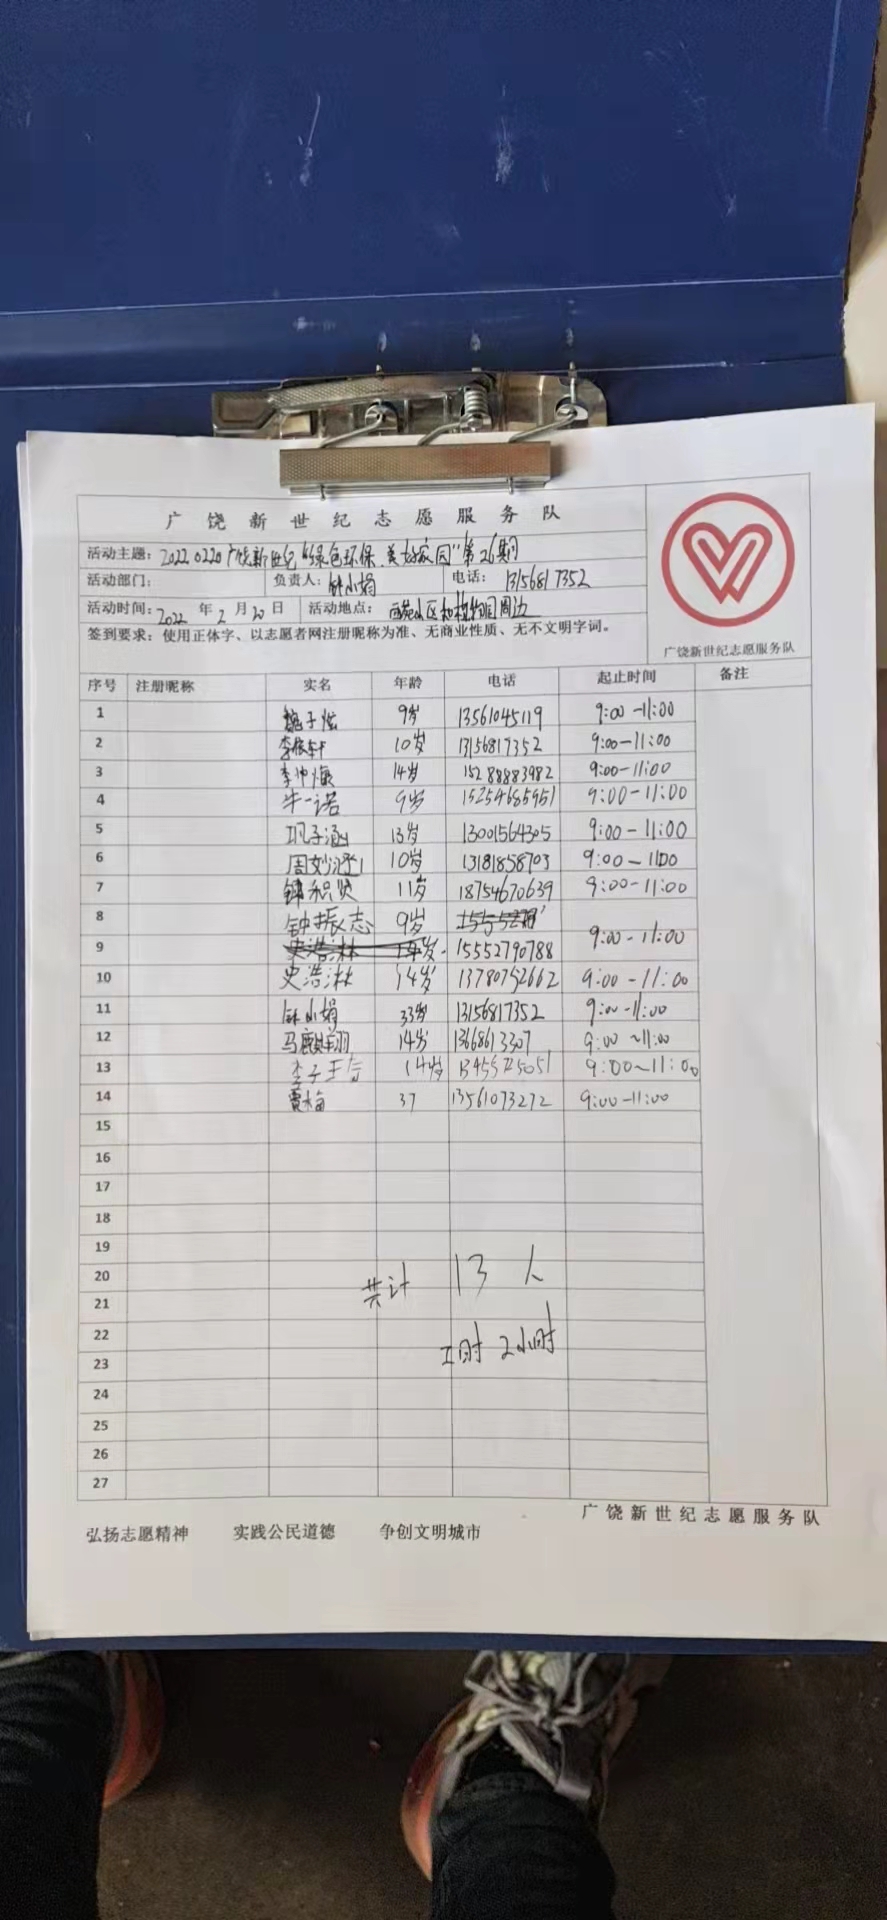 广饶新世纪志愿服务队
活动主题：20220220广饶新世纪"绿色环保、美好家园"第26期
活动部门： 负责人：钟小娟 电话：13156817352
活动时间：2022年2月20日 活动地点：西苑小区和植物园周边
签到要求：使用正体字、以志愿者网注册昵称为准、无商业性质、无不文明字词。
广饶新世纪志愿服务队
序号 注册昵称 实名 年龄 电话 起止时间 备注
1 魏子炫 9岁 13561045119 9:00-11:00
2 李俊轩 10岁 13156817352 9:00-11:00
3 李帅 14岁 15288883982 9:00-11:00
4 牛一诺 9岁 15254685951 9:00-11:00
5 巩子涵 13岁 13001564305 9:00-11:00
6 周妙 10岁 13181858703 9:00-11:00
7 钟积贤 11岁 18754670639 9:00-11:00
8 钟振志 9岁
9 史浩淋 14岁 15552790788 9:00-11:00
10 史浩淋 14岁 13780752662 9:00-11:00
11 钟小娟 33岁 13156817352 9:00-11:00
12 马麒翔 14岁 13668613307 9:00~11:00
13 李子 14岁 9:00~11:00
14 贾梅 37 13561073272 9:00-11:00
15
16
17
18
19
20 共计 13人
21
22
23 工时 2小时
24
25
26
27
弘扬志愿精神 实践公民道德 争创文明城市 广饶新世纪志愿服务队